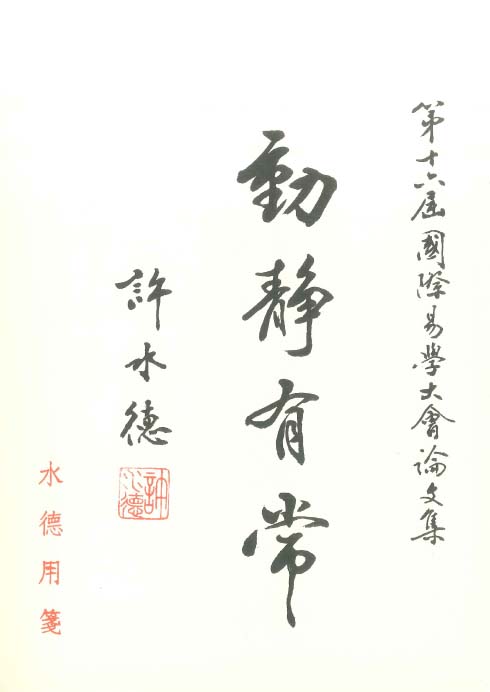 第十六屆國際易學大會論文集
動靜有常
許水德
許水德
水德用箋